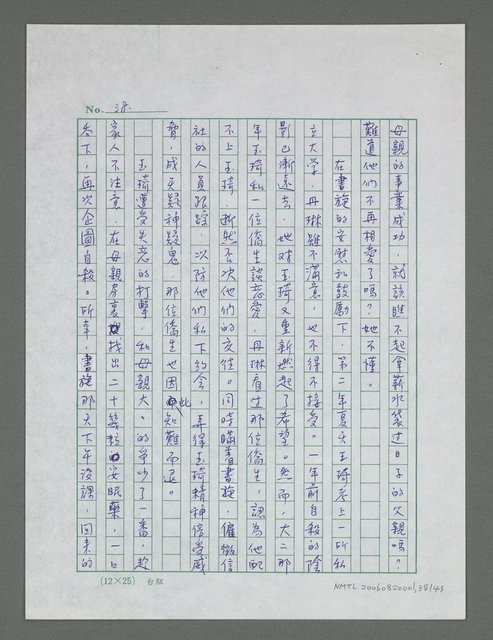 No. 38.
母親的事業成功，就該瞧不起拿薪水袋過日子的父親嗎？
難道他們不再相愛了嗎？她不懂。
在書旋的安慰和鼓勵下，第二年夏天玉琦考上一所私
立大學，丹琳雖不滿意，也不得不接受。一年前自殺的陰
影已漸遠去，她對玉琦又重新燃起了希望。然而，大二那
年玉琦和一位僑生談戀愛，丹琳看出那位僑生，認為他配
不上玉琦，斷然否決他們的交往。同時瞞著書旋，僱徵信
社的人員跟踪，以防他們私下約會，弄得玉琦精神倍受威
脅，成天疑神疑鬼，那位僑生也因此知難而退。
玉琦遭受失意的打擊，和母親大大的爭吵了一番，趁
家人不注意，在母親房裏找出二十幾粒安眠藥，一口
吞下，再次企圖自殺。所幸，書旋那天下午沒課，回來的
(12×25) 台紐
NMTL 20060820001,38/43